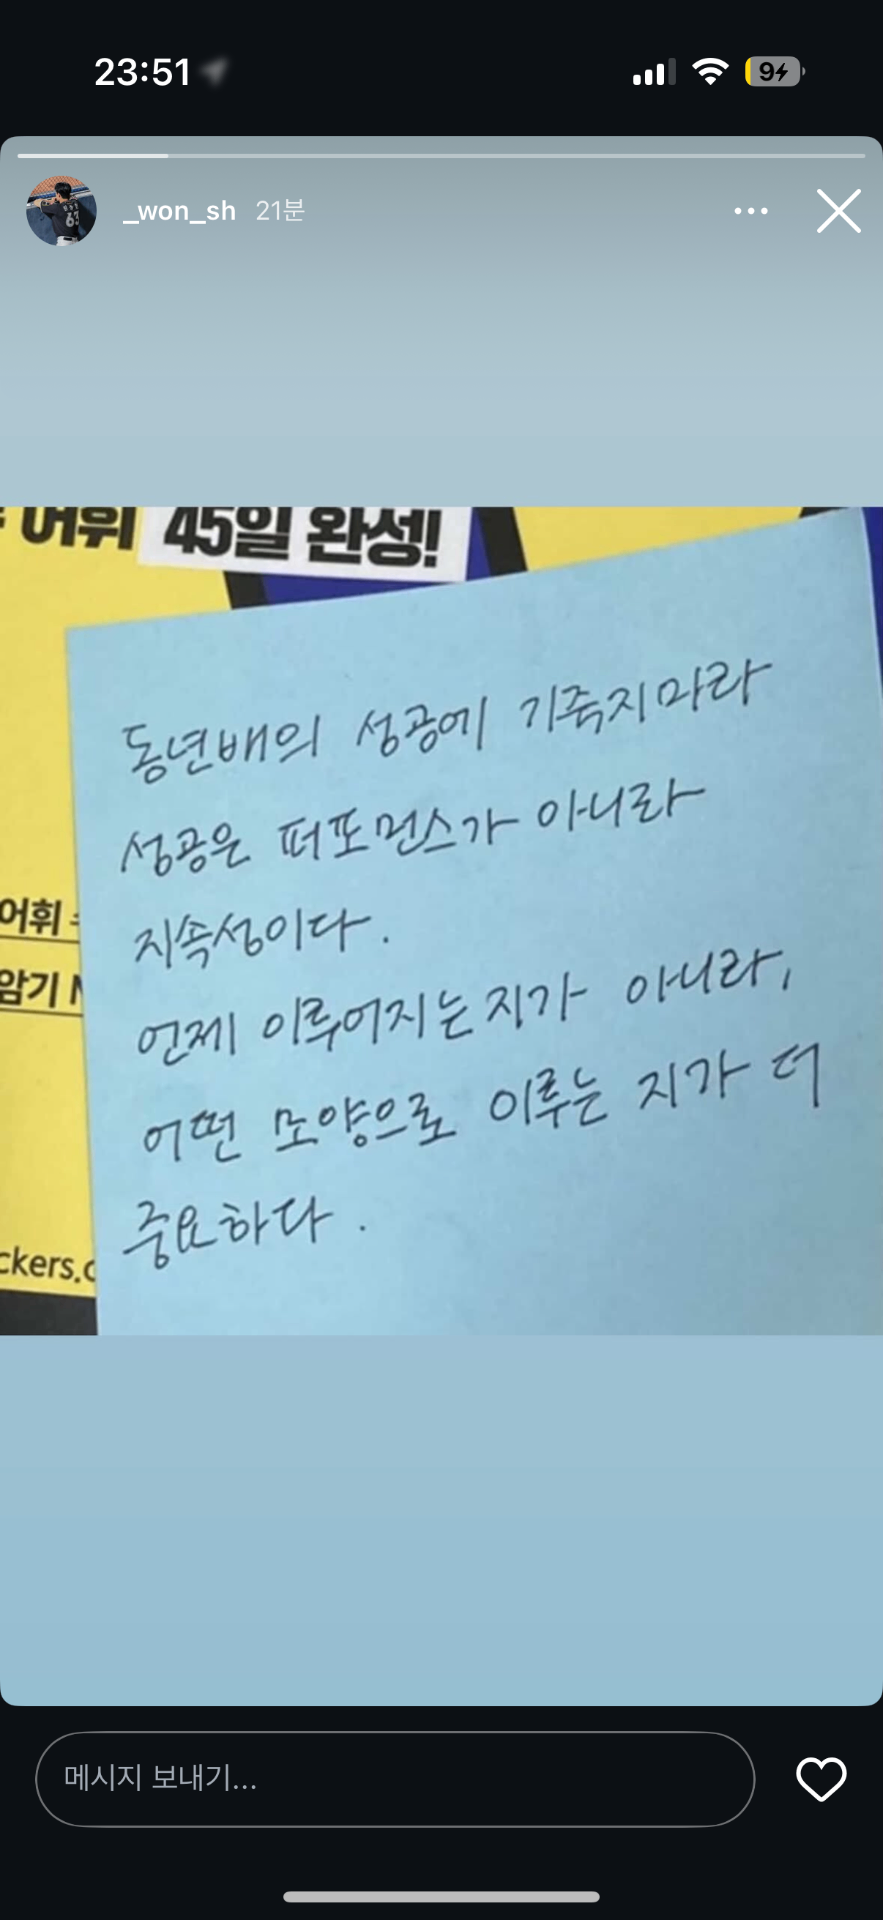 23:51
9
_won_sh 21분
63
어휘 45일 완성!
동년배의 성공에 기죽지마라
성공은 퍼포먼스가 아니라
어휘
지속성이다.
암기
언제 이루어지는지가 아니라,
어떤 모양으로 이루는 지가 더
중요하다.
ckers.c
메시지 보내기...